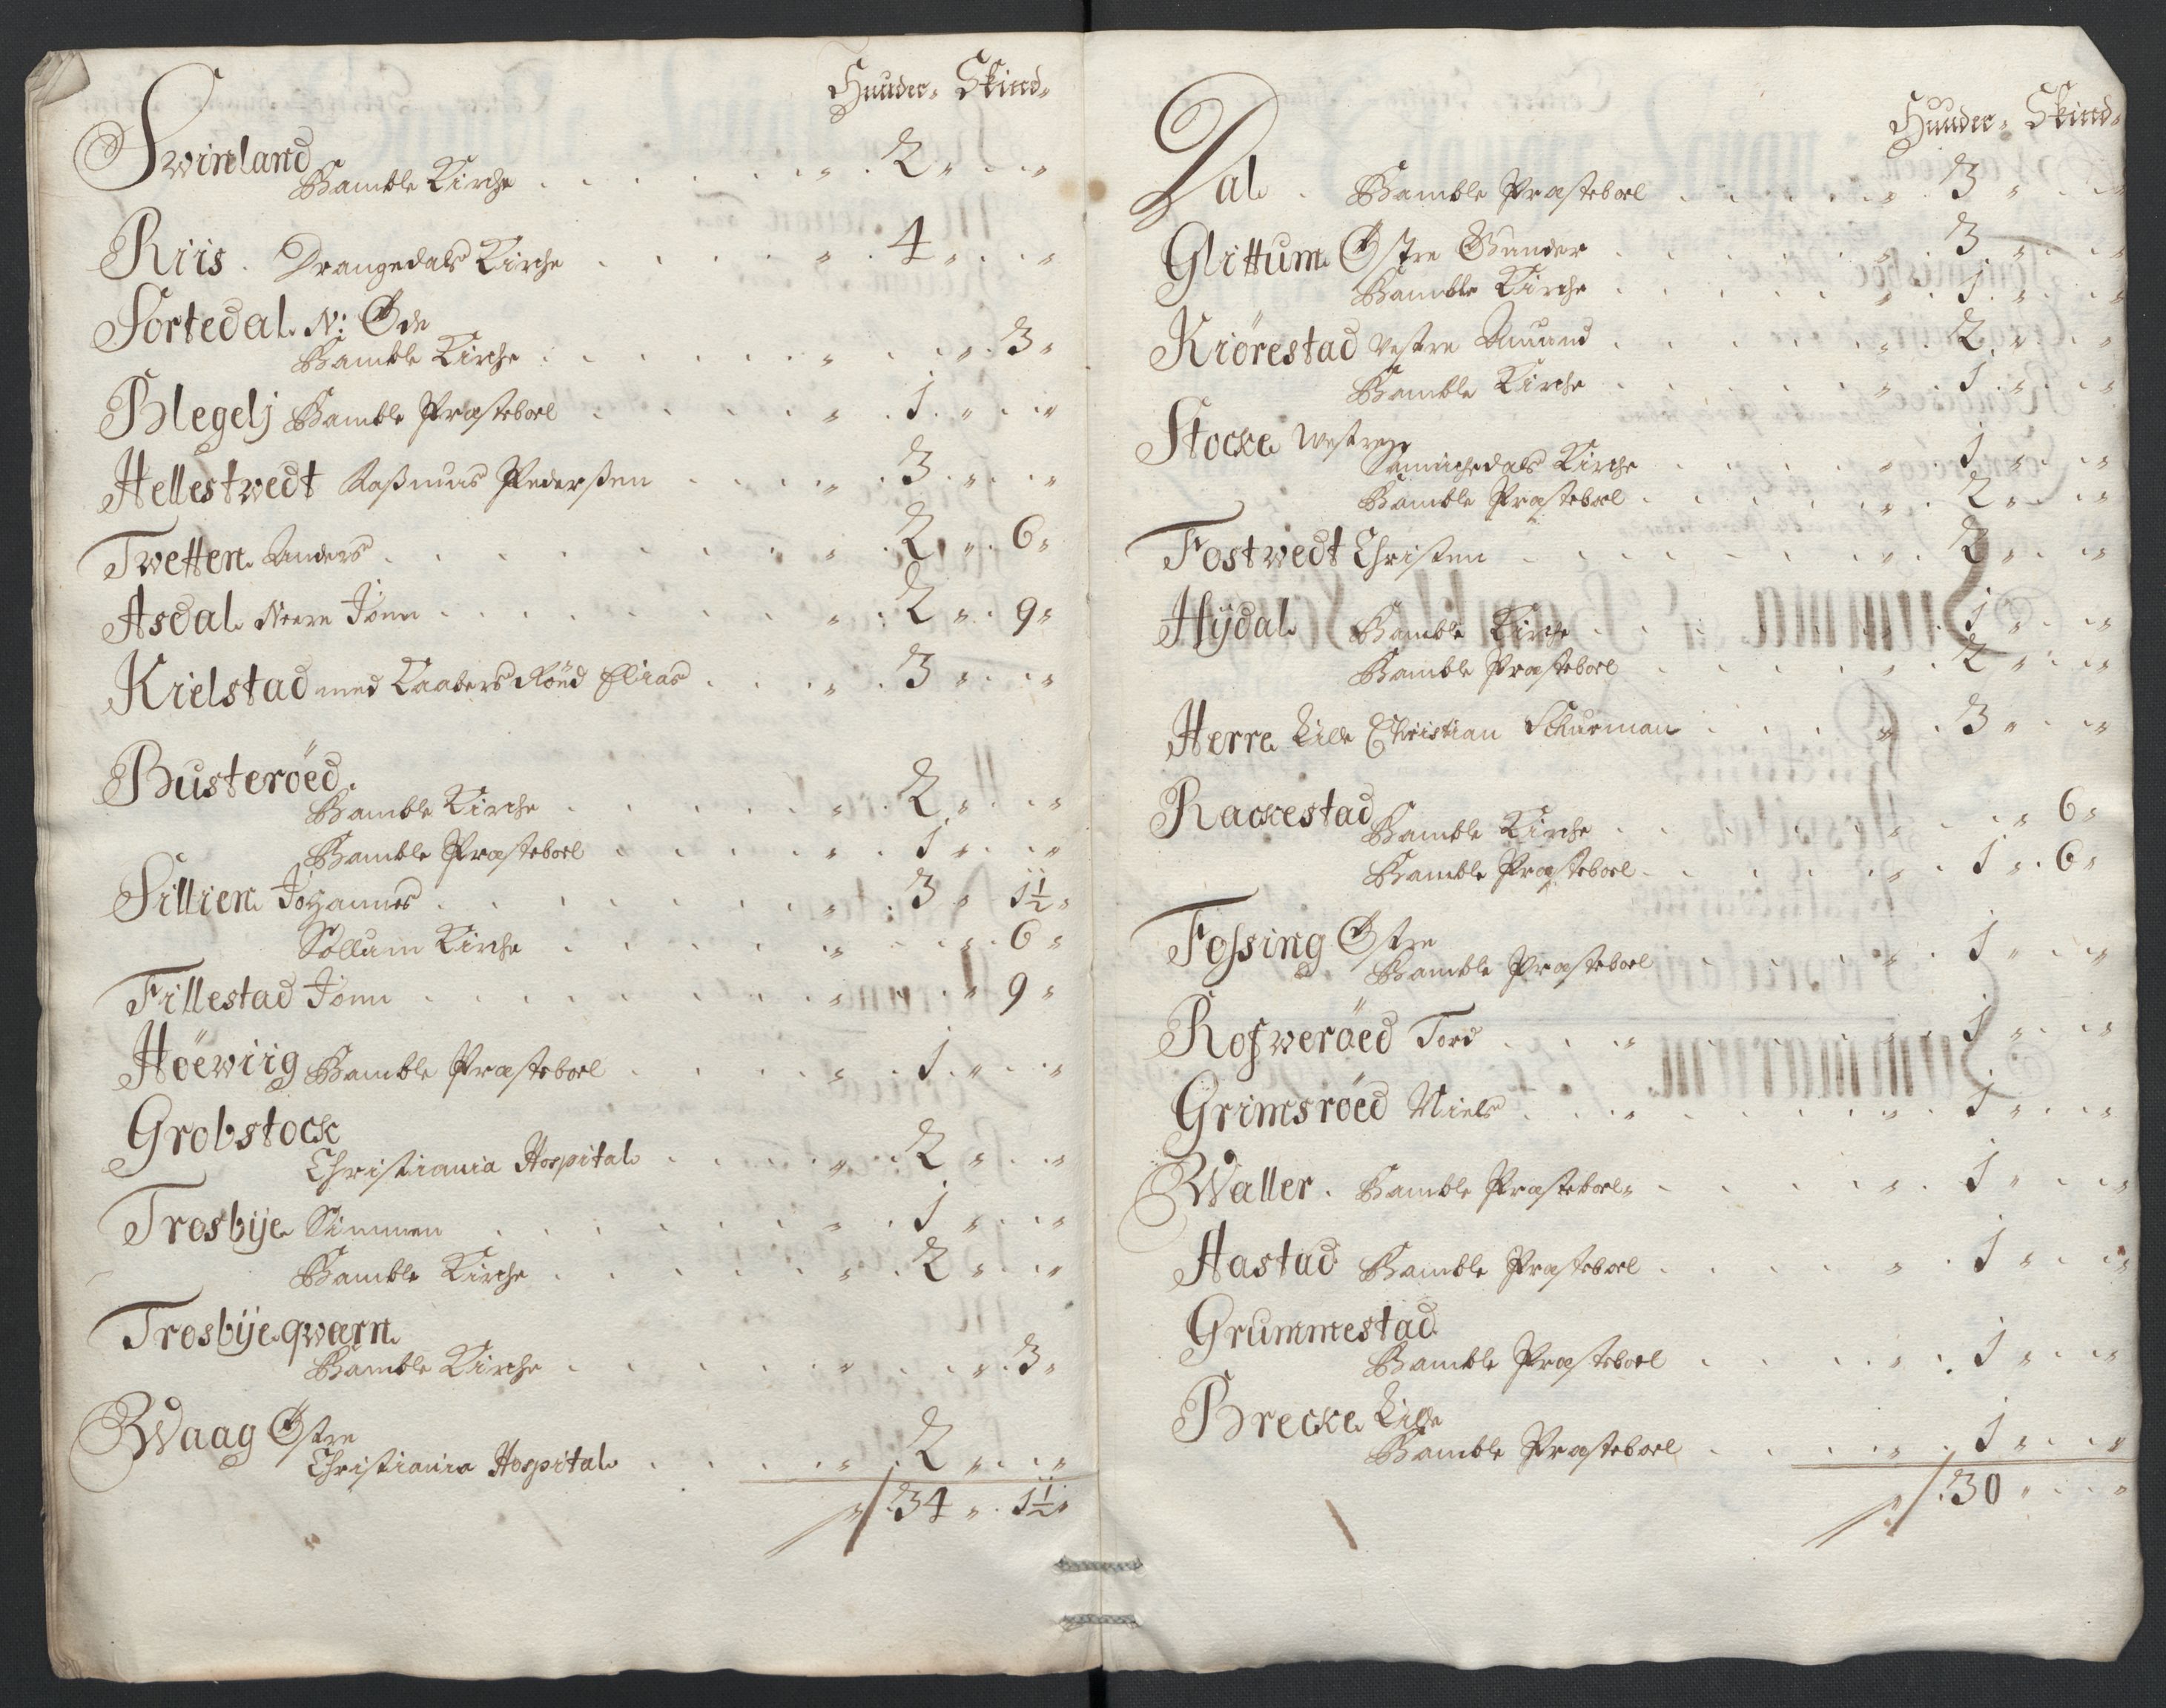 Huuder „ Skind „
Swinland
Bamble Kirche . . . . . . „ . 2 „ . . „
Riis . Drangedals Kirche . . . . „ . 4 „ . . „
Sortedal N: Øde
Bamble Kirche . . . . . . „ . . „ . 3 „
Blegelj Bamble Præsteboel . . . . „ . 1 . „ . . „
Hellestwedt Rasmus Pedersen . . . . „ . 3 . „ . . „
Twetten Anders . . . . . . . . „ . 2 „ . 6 „
Asdal Neere Jonn . . . . . . . „ . 2 „ . 9 „
Kielstad med Kaabers Röed Elias . . . „ . 3 „ . . „
Busteröed
Bamble Kirche . . . . . . „ . 2 „ . . „
Bamble Præsteboel . . . . . „ . 1 „ . . „
Sillien Johannes . . . . . . . „ . 3 „ 1½ „
Sollum Kirche . . . . . . „ . . „ . 6 „
Fillestad Jonn . . . . . . . . „ . . „ 9 „
Höewiig Bamble Præsteboel . . . . „ . 1 . „ . . „
Grobstock
Christiania Hospital . . . . „ . 2 „ . . „
Trosbije Simmen . . . . . . . „ . 1 „ . . „
Bamble Kirche . . . . . . „ . 2 „ . . „
Trosbije qwærn
Bamble Kirche . . . . . . „ . . „ . 3 „
Waag Østre
Christiania Hospital . . . . „ . 2 „ . . „
„ 34 „ . 1½ „
Huuder „ Skind „
Dal . Bamble Præsteboel . . . . . „ . 3 „ . . „
Glittum Østre Gunder . . . . . „ . 3 „ . . „
Bamble Kirche . . . . . „ . 1 . „ . . „
Kiörestad Vestre Amund . . . . . „ . 2 . „ . . „
Bamble Kirche . . . . . „ . 1 . „ . . „
Stocke Westre
Sannichedals Kirche . . . . „ . 1 „ . . „
Bamble Præsteboel . . . . „ . 2 „ . . „
Fostwedt Christen . . . . . . . „ . 2 „ . . „
Hijdal Bamble Kirche . . . . . . „ . 1 „ . . „
Bamble Præsteboel . . . . „ . 2 „ . . „
Herre Lille Christian Schurman . . . „ . 3 „ . . „
Rackestad
Bamble Kirche . . . . . „ . . „ 6 „
Bamble Præsteboel . . . . . „ . 1 „ . 6 „
Fossing Østre
Bamble Præsteboel . . . . „ . 1 „ . . „
Rosweröed Tord . . . „ . . . . „ . 1 „ . . „
Grimsröed Niels . . . „ . . . . „ . 1 „ . . „
Waller . Bamble Præsteboel „ . . . . „ . 1 „ . . „
Hastad Bamble Præsteboel . . . . „ . 1 „ . . „
Grummestad
Bamble Præsteboel . . . . „ . 1 „ . . „
Brecke Lille
Bamble Præsteboel . . . . „ . 1 „ . . „
„ . 30 „ . . „